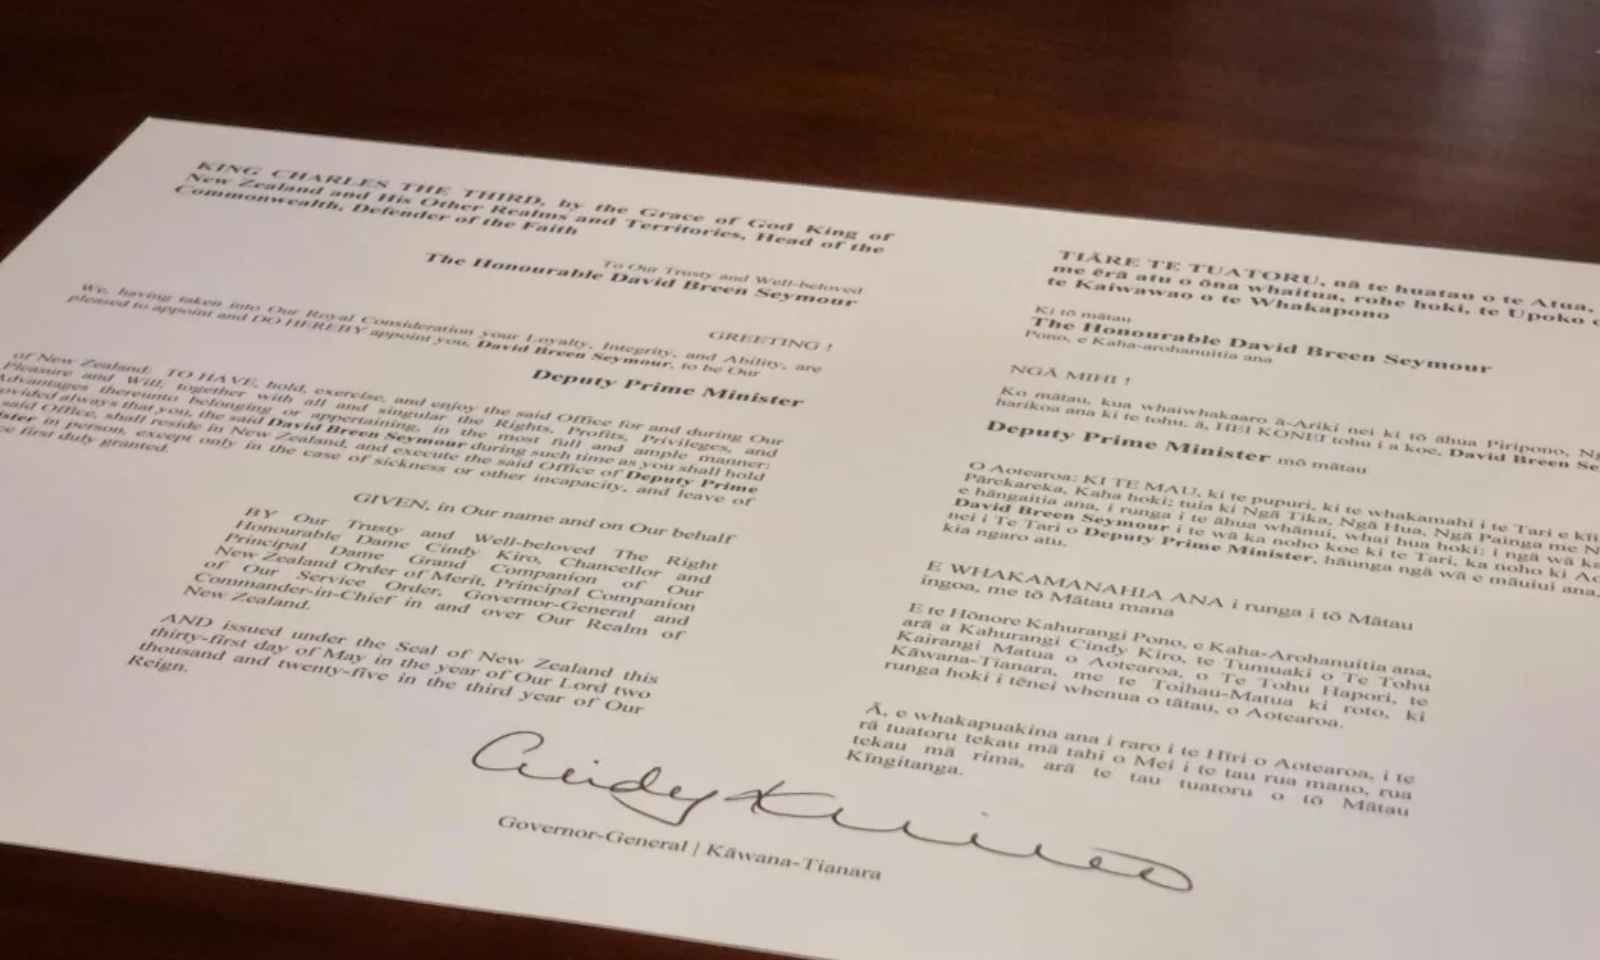 KING CHARLES THE THIRD, by the Grace of God King of
New Zealand and His Other Realms and Territories, Head of the
Commonwealth, Defender of the Faith
To Our Trusty and Well-beloved
The Honourable David Breen Seymour
GREETING !
We, having taken into Our Royal Consideration your Loyalty, Integrity, and Ability, are
pleased to appoint and DO HEREBY appoint you, David Breen Seymour, to be Our
Deputy Prime Minister
of New Zealand: TO HAVE, hold, exercise, and enjoy the said Office for and during Our
Pleasure and Will, together with all and singular the Rights, Profits, Privileges, and
Advantages thereunto belonging or appertaining, in the most full and ample manner:
always that you, the said David Breen Seymour during such time as you shall hold
said Office, shall reside in New Zealand, and execute the said Office of Deputy Prime
in person, except only in the case of sickness or other incapacity, and leave of
first duly granted.
GIVEN, in Our name and on Our behalf
BY Our Trusty and Well-beloved The Right
Honourable Dame Cindy Kiro, Chancellor and
Principal Dame Grand Companion of Our
New Zealand Order of Merit, Principal Companion
of Our Service Order, Governor-General and
Commander-in-Chief in and over Our Realm of
New Zealand.
AND issued under the Seal of New Zealand this
thirty-first day of May in the year of Our Lord two
thousand and twenty-five in the third year of Our
Reign.
Cindy Kiro
Governor-General | Kāwana-Tianara
TIĀRE TE TUATORU, nā te huatau o te Atua,
me ērā atu o ōna whaitua, rohe hoki, te Upoko
te Kaiwawao o te Whakapono
Ki tō mātau
The Honourable David Breen Seymour
Pono, e Kaha-arohanuitia ana
NGĀ MIHI !
Ko mātau, kua whaiwhakaaro ā-Ariki nei ki tō āhua Piripono,
harikoa ana ki te tohu, ā, HEI KONEI tohu i a koe, David Breen
Deputy Prime Minister mō mātau
O Aotearoa: KI TE MAU, ki te pupuri, ki te whakamahi i te Tari e
Pārekareka, Kaha hoki; tuia ki Ngā Tika, Ngā Hua, Ngā Painga me
e hāngaitia ana, i runga i te āhua whānui, whai hua hoki: i ngā wā
David Breen Seymour i te wā ka noho koe ki te Tari, ka noho ki
nei i Te Tari o Deputy Prime Minister, hāunga ngā wā e māuiui ana,
kia ngaro atu.
E WHAKAMANAHIA ANA i runga i tō Mātau
ingoa, me tō Mātau mana
E te Hōnore Kahurangi Pono, e Kaha-Arohanuitia ana,
arā a Kahurangi Cindy Kiro, te Tumuaki o Te Tohu
Kairangi Matua o Aotearoa, o Te Tohu Hapori, te
Kāwana-Tianara, me te Toihau-Matua ki roto, ki
runga hoki i tēnei whenua o tātau, o Aotearoa.
Ā, e whakapuakina ana i raro i te Hīri o Aotearoa, i te
rā tuatoru tekau mā tahi o Mei i te tau rua mano, rua
tekau mā rima, arā te tau tuatoru o tō Mātau
Kīngitanga.